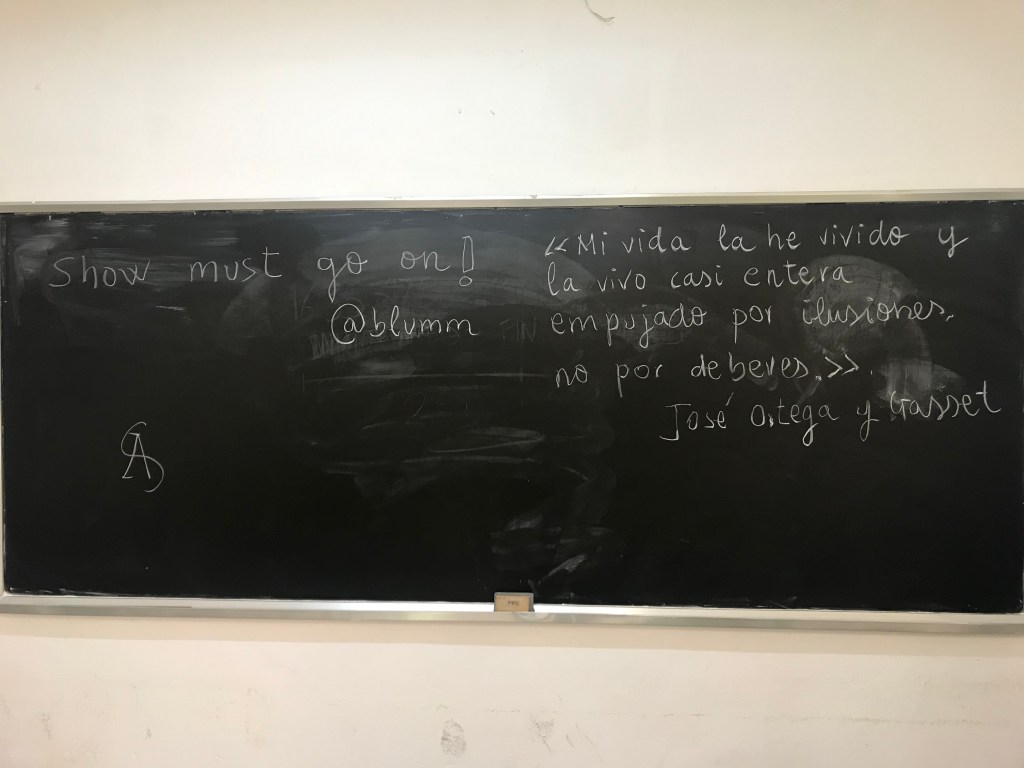 Show must go on!
@blumm
«Mi vida la he vivido y
la vivo casi entera
empujado por ilusiones,
no por deberes.».
José Ortega y Gasset